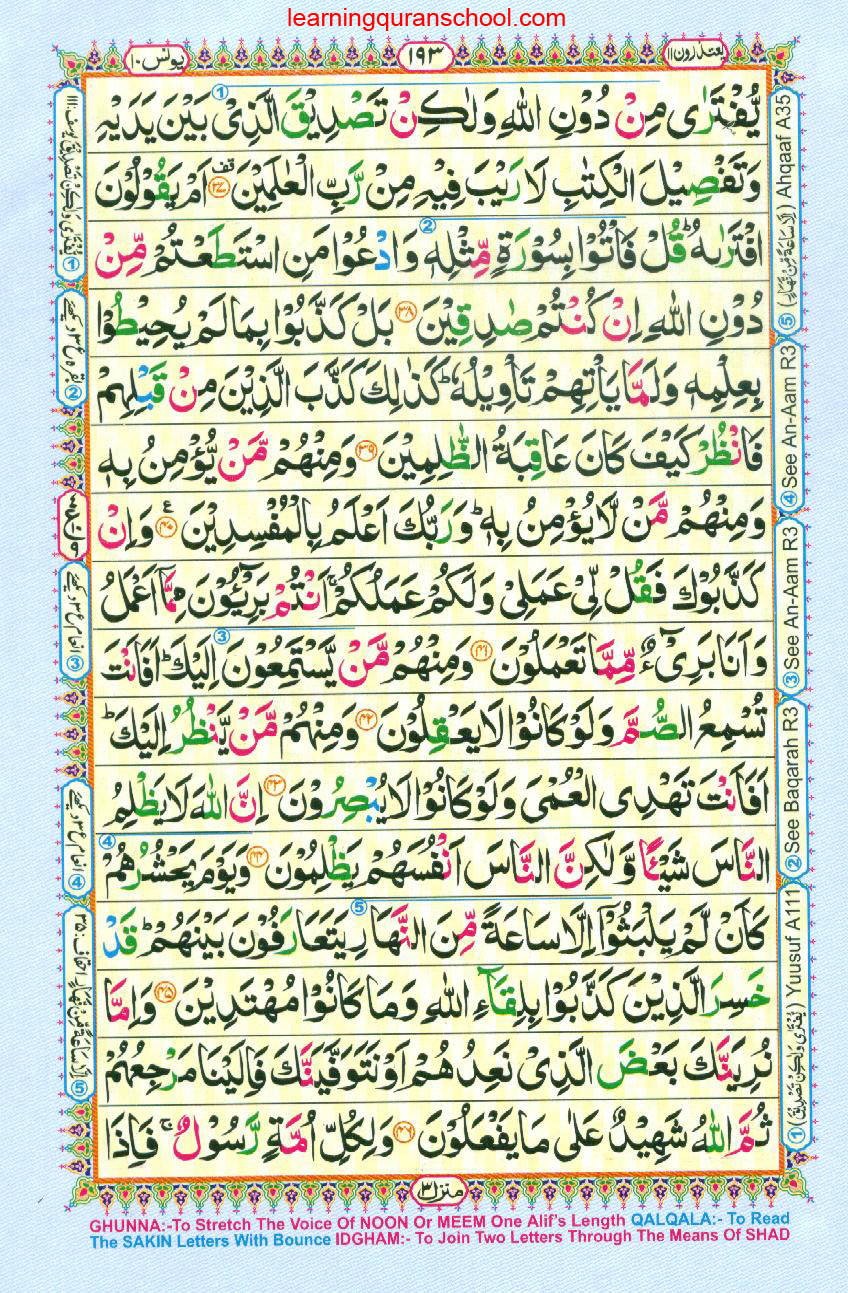 learningquranschool.com
يونس ١٠
١٩٣
يعتذرون ١١
يُّفْتَرٰى مِنْ دُوْنِ اللّٰهِ وَلٰكِنْ تَصْدِيْقَ الَّذِىْ بَيْنَ يَدَيْهِ
وَتَفْصِيْلَ الْكِتٰبِ لَا رَيْبَ فِيْهِ مِنْ رَّبِّ الْعٰلَمِيْنَ ۟قف ٣٧ اَمْ يَقُوْلُوْنَ
افْتَرٰىهُ ؕ قُلْ فَاْتُوْا بِسُوْرَةٍ مِّثْلِهٖ وَادْعُوْا مَنِ اسْتَطَعْتُمْ مِّنْ
دُوْنِ اللّٰهِ اِنْ كُنْتُمْ صٰدِقِيْنَ ٣٨ بَلْ كَذَّبُوْا بِمَا لَمْ يُحِيْطُوْا
بِعِلْمِهٖ وَلَمَّا يَاْتِهِمْ تَاْوِيْلُهٗ ؕ كَذٰلِكَ كَذَّبَ الَّذِيْنَ مِنْ قَبْلِهِمْ
فَانْظُرْ كَيْفَ كَانَ عَاقِبَةُ الظّٰلِمِيْنَ ٣٩ وَمِنْهُمْ مَّنْ يُّؤْمِنُ بِهٖ
وَمِنْهُمْ مَّنْ لَّا يُؤْمِنُ بِهٖ ؕ وَرَبُّكَ اَعْلَمُ بِالْمُفْسِدِيْنَ ٤٠ ع وَاِنْ
كَذَّبُوْكَ فَقُلْ لِّىْ عَمَلِىْ وَلَكُمْ عَمَلُكُمْ ۚ اَنْتُمْ بَرِيْٓـُٔوْنَ مِمَّاۤ اَعْمَلُ
وَاَنَا بَرِىْٓءٌ مِّمَّا تَعْمَلُوْنَ ٤١ وَمِنْهُمْ مَّنْ يَّسْتَمِعُوْنَ اِلَيْكَ ؕ اَفَاَنْتَ
تُسْمِعُ الصُّمَّ وَلَوْ كَانُوْا لَا يَعْقِلُوْنَ ٤٢ وَمِنْهُمْ مَّنْ يَّنْظُرُ اِلَيْكَ ؕ
اَفَاَنْتَ تَهْدِى الْعُمْىَ وَلَوْ كَانُوْا لَا يُبْصِرُوْنَ ٤٣ اِنَّ اللّٰهَ لَا يَظْلِمُ
النَّاسَ شَيْـًٔا وَّلٰكِنَّ النَّاسَ اَنْفُسَهُمْ يَظْلِمُوْنَ ٤٤ وَيَوْمَ يَحْشُرُهُمْ
كَاَنْ لَّمْ يَلْبَثُوْۤا اِلَّا سَاعَةً مِّنَ النَّهَارِ يَتَعَارَفُوْنَ بَيْنَهُمْ ؕ قَدْ
خَسِرَ الَّذِيْنَ كَذَّبُوْا بِلِقَآءِ اللّٰهِ وَمَا كَانُوْا مُهْتَدِيْنَ ٤٥ وَاِمَّا
نُرِيَنَّكَ بَعْضَ الَّذِىْ نَعِدُهُمْ اَوْ نَتَوَفَّيَنَّكَ فَاِلَيْنَا مَرْجِعُهُمْ
ثُمَّ اللّٰهُ شَهِيْدٌ عَلٰى مَا يَفْعَلُوْنَ ٤٦ وَلِكُلِّ اُمَّةٍ رَّسُوْلٌ ۚ فَاِذَا
⑤ (اِلَّا سَاعَةً مِّنْ نَّهَارٍ) Ahqaaf A35
④ See An-Aam R3
③ See An-Aam R3
② See Baqarah R3
① (يُفْتَرٰى وَلٰكِنْ تَصْدِيْقَ) Yuusuf A111
منزل ٣
GHUNNA:-To Stretch The Voice Of NOON Or MEEM One Alif's Length QALQALA:- To Read
The SAKIN Letters With Bounce IDGHAM:- To Join Two Letters Through The Means Of SHAD